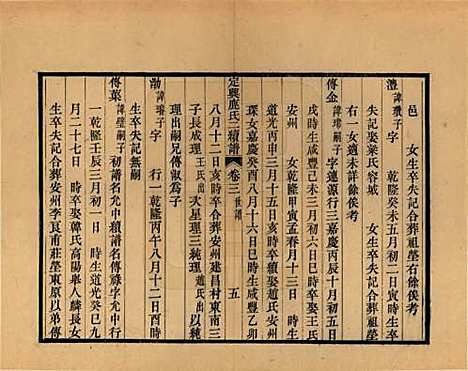 邑 女生卒失記合葬祖塋右餘俟考
澧諱瓚子字 乾隆癸未五月初二日寅時生卒
失記娶梁氏容城 女生卒失記合葬祖塋
右一女適未詳餘俟考
傳金諱璕嗣子字蓮源行三嘉慶丙辰十月初五日
戌時生咸豐己未三月初六日辰時卒娶王氏
安州 女乾隆甲寅孟春月十三日 時生
道光丙申三月十八日 時卒續娶趙氏安州
琛女嘉慶癸酉八月十六日巳時生咸豐乙卯
定興鹿氏二續譜 卷三世譜 五
八月十二日 時卒合葬安州建昌村東南三
子長成理王氏出次星理三純理趙氏出以純
理出嗣兄傳敘爲子
渤諱璿子字 行一乾隆丙午八月十二日酉時
生卒失記無嗣
傳葉諱璧嗣子初譜名允中續譜名傳祿字允中行
一乾隆壬辰三月初一日 時生道光癸巳九
月二十七日 時卒娶韓氏高陽舉人麟長女
生卒失記合葬安州李艮甫莊塋東原以弟傳